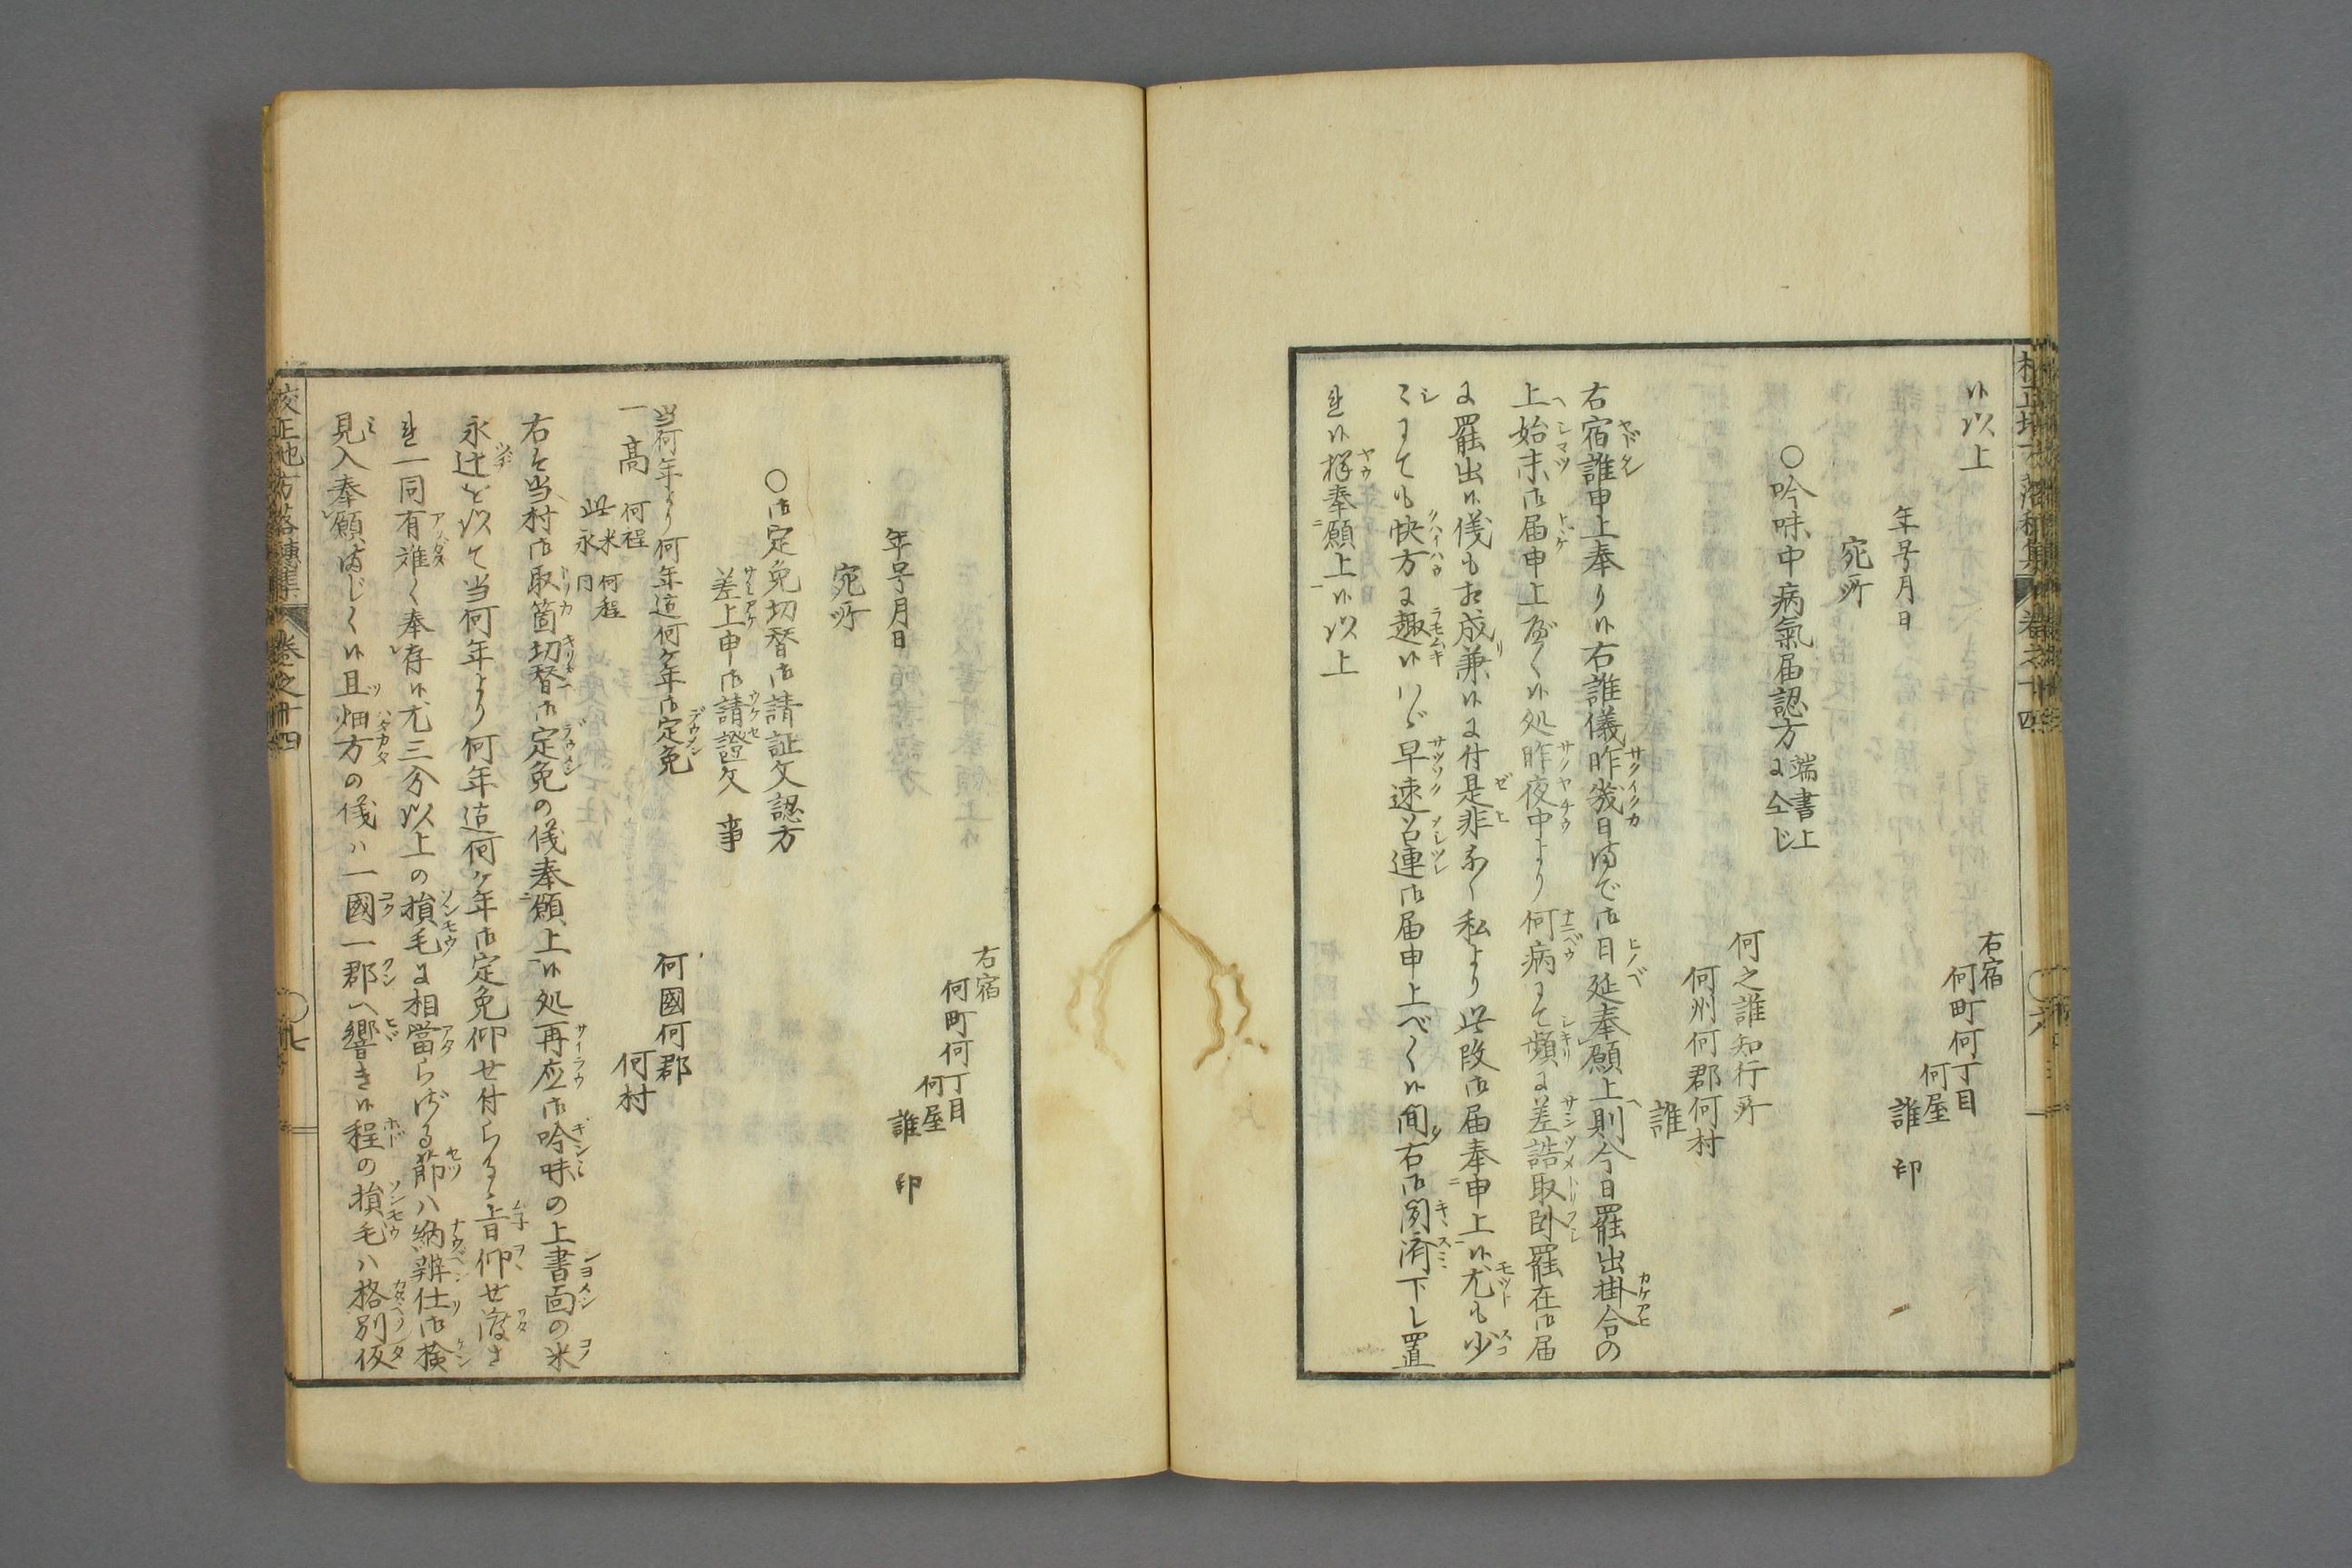 候以上
右宿
何町何丁目
何屋
誰　印
年号月日
宛所
〇吟味中病氣届認方端書上に全じ
何之誰知行所
何州何郡何村
誰
右宿誰申上奉り候右誰儀昨幾日まで御日延奉願上則今日罷出掛合の
上始末御届申上べく候処昨夜中より何病にて頻に差詰取臥罷在御届
に罷出候儀も相成兼候に付是非なく私より此段御届奉申上候尤も少
しにても快方に趣候はゞ早速召連御届申上べく候間右御聞済下し置
れ候様奉願上候以上
右宿
何町何丁目
何屋
誰　印
年号月日
宛所
〇御定免切替御請証文認方
差上申御請證文事
当何年より何年迄何ケ年御定免
何國何郡
何村
一高　何程
此米何程
永何程
右は当村御取箇切替御定免の儀奉願上候処再応御吟味の上書面の米
永辻を以て当何年より何年迄何ケ年御定免仰せ付らるゝ旨仰せ渡さ
れ一同有難く奉存候尤三分以上の損毛に相當らざる節ハ納辨仕御検
見入奉願まじく候且畑方の儀ハ一國一郡へ響き候程の損毛ハ格別仮
校正地方落穂集　巻之十四　〇七